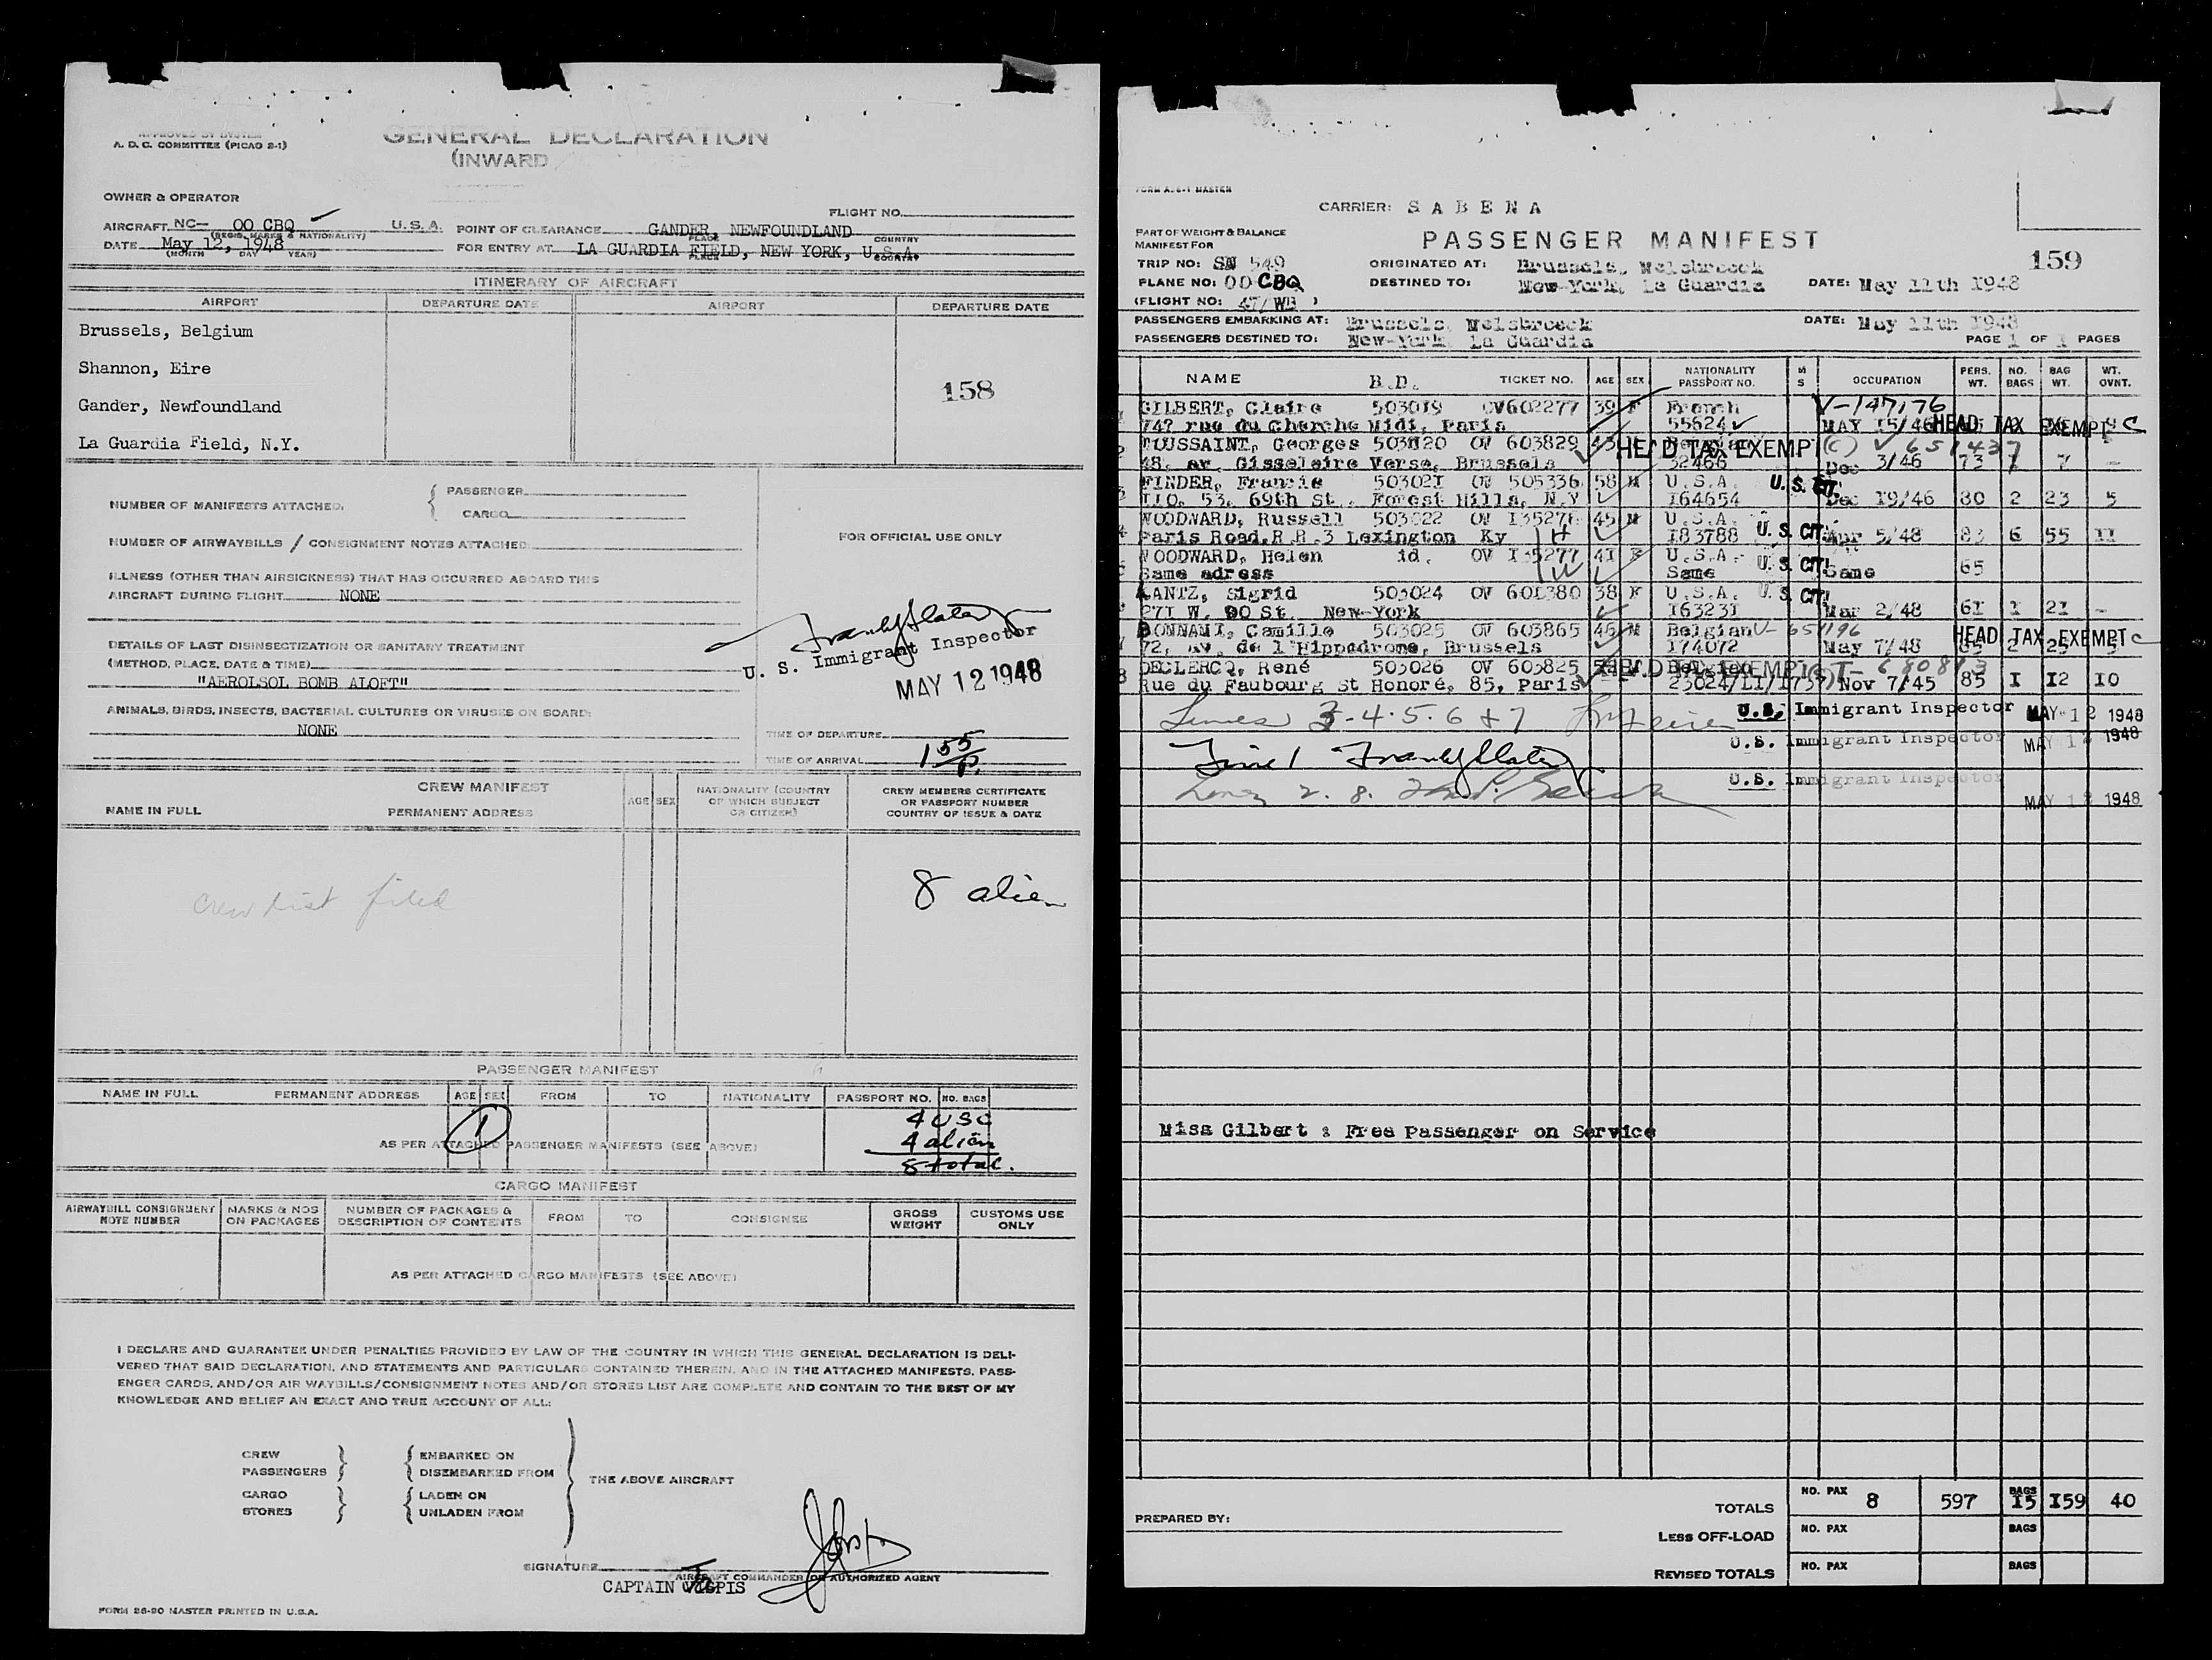 A. D. C. COMMITTEE (PICAO 2-1)
GENERAL DECLARATION
(INWARD
OWNER & OPERATOR
FLIGHT NO.
AIRCRAFT NC- OO CBQ U.S.A.
(REGIS. MARKS & NATIONALITY)
POINT OF CLEARANCE GANDER, NEWFOUNDLAND
PLACE COUNTRY
DATE May 12, 1948
(MONTH DAY YEAR)
FOR ENTRY AT LA GUARDIA FIELD, NEW YORK, U.S.A.
PLACE COUNTRY
ITINERARY OF AIRCRAFT
AIRPORT DEPARTURE DATE AIRPORT DEPARTURE DATE
Brussels, Belgium
Shannon, Eire
158
Gander, Newfoundland
La Guardia Field, N.Y.
NUMBER OF MANIFESTS ATTACHED. { PASSENGER
CARGO
NUMBER OF AIRWAYBILLS / CONSIGNMENT NOTES ATTACHED
FOR OFFICIAL USE ONLY
ILLNESS (OTHER THAN AIRSICKNESS) THAT HAS OCCURRED ABOARD THIS
AIRCRAFT DURING FLIGHT NONE
DETAILS OF LAST DISINSECTIZATION OR SANITARY TREATMENT
(METHOD, PLACE, DATE & TIME)
"AEROLSOL BOMB ALOFT"
U. S. Immigrant Inspector
MAY 12 1948
ANIMALS, BIRDS, INSECTS, BACTERIAL CULTURES OR VIRUSES ON BOARD:
NONE
TIME OF DEPARTURE
TIME OF ARRIVAL 1 55 P.
CREW MANIFEST
NAME IN FULL PERMANENT ADDRESS AGE SEX NATIONALITY (COUNTRY OF WHICH SUBJECT OR CITIZEN) CREW MEMBERS CERTIFICATE OR PASSPORT NUMBER COUNTRY OF ISSUE & DATE
Crew list filed
8 alien
PASSENGER MANIFEST
NAME IN FULL PERMANENT ADDRESS AGE SEX FROM TO NATIONALITY PASSPORT NO. NO. BAGS
1
AS PER ATTACHED PASSENGER MANIFESTS (SEE ABOVE)
4 USC
4 alien
8 total.
CARGO MANIFEST
AIRWAYBILL CONSIGNMENT NOTE NUMBER MARKS & NOS ON PACKAGES NUMBER OF PACKAGES & DESCRIPTION OF CONTENTS FROM TO CONSIGNEE GROSS WEIGHT CUSTOMS USE ONLY
AS PER ATTACHED CARGO MANIFESTS (SEE ABOVE)
I DECLARE AND GUARANTEE UNDER PENALTIES PROVIDED BY LAW OF THE COUNTRY IN WHICH THIS GENERAL DECLARATION IS DELI-
VERED THAT SAID DECLARATION, AND STATEMENTS AND PARTICULARS CONTAINED THEREIN, AND IN THE ATTACHED MANIFESTS, PASS-
ENGER CARDS, AND/OR AIR WAYBILLS/CONSIGNMENT NOTES AND/OR STORES LIST ARE COMPLETE AND CONTAIN TO THE BEST OF MY
KNOWLEDGE AND BELIEF AN EXACT AND TRUE ACCOUNT OF ALL:
CREW } { EMBARKED ON
PASSENGERS } { DISEMBARKED FROM
THE ABOVE AIRCRAFT
CARGO } { LADEN ON
STORES } { UNLADEN FROM
SIGNATURE
AIRCRAFT COMMANDER OR AUTHORIZED AGENT
CAPTAIN
FORM 26-90 MASTER PRINTED IN U.S.A.
CARRIER: SABENA
PART OF WEIGHT & BALANCE
MANIFEST FOR
PASSENGER MANIFEST
159
TRIP NO: SN 549
ORIGINATED AT: Brussels, Melsbroeck
PLANE NO: OO CBQ
DESTINED TO: New-York, La Guardia
DATE: May 11th 1948
(FLIGHT NO: 47/WB )
PASSENGERS EMBARKING AT: Brussels, Melsbroeck
DATE: May 11th 1948
PASSENGERS DESTINED TO: New-York, La Guardia
PAGE 1 OF 1 PAGES
NAME B.D. TICKET NO. AGE SEX NATIONALITY PASSPORT NO. M S OCCUPATION PERS. WT. NO. BAGS BAG WT. WT. OVNT.
1 GILBERT, Claire 503019 OV602277 39 F French V-147176
747 rue du Cherche Midi, Paris 55624 MAY 15/46 HEAD TAX EXEMPT C
2 TOUSSAINT, Georges 503020 OV 603829 43 M HEAD TAX EXEMPT (C) V 651437
48, av. Gisseleire Verse, Brussels 32466 Dec 3/46 73 1 7 -
3 FINDER, Francis 503021 OV 505336 58 M U.S.A. U.S. CIT.
110. 53. 69th St., Forest Hills, N.Y 164654 Dec 19/46 80 2 23 5
4 WOODWARD, Russell 503022 OV 135276 45 M U.S.A. U.S. CIT.
Paris Road, R.R.3 Lexington Ky 183788 Apr 5/48 83 6 55 11
5 WOODWARD, Helen id. OV 135277 41 F U.S.A. U.S. CIT.
Same adress Same Same 65
6 LANTZ, Sigrid 503024 OV 601380 38 F U.S.A. U.S. CIT.
271 W. 90 St. New-York 163231 Mar 2/48 61 1 21 -
7 BONNAMI, Camille 503025 OV 603865 46 M Belgian V- 651196
72, Av. de l'Hippodrome, Brussels 174072 May 7/48 HEAD TAX EXEMPT C 85 2 25 5
8 DECLERCQ, René 503026 OV 603825 HEAD TAX EXEMPT T- 680813
Rue du Faubourg St Honoré, 85, Paris 23024/LI/1737 Nov 7/45 85 1 12 10
Lines 3-4-5-6 & 7
U.S. Immigrant Inspector MAY 12 1948
Line 1
U.S. Immigrant Inspector MAY 12 1948
Lines 2. 8.
U.S. Immigrant Inspector
MAY 12 1948
Miss Gilbert : Free Passenger on Service
TOTALS NO. PAX 8 597 BAGS 15 159 40
PREPARED BY:
LESS OFF-LOAD NO. PAX BAGS
REVISED TOTALS NO. PAX BAGS